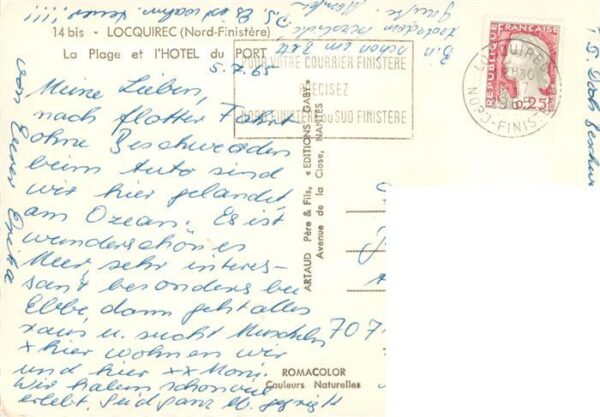 14 bis - LOCQUIREC (Nord-Finistère)
La Plage et l'HOTEL du PORT
POUR VOTRE COURRIER FINISTERE
PRECISEZ
NORD-FINISTERE OU SUD FINISTERE
REPUBLIQUE FRANÇAISE
0,25
LOCQUIREC
NORD-FINISTERE
5.7.65
Meine Lieben,
nach flotter Fahrt
ohne Beschwerden
beim Auto sind
wir hier gelandet
am Ozean. Es ist
wunderschönes
Meer, sehr interes-
sant besonders bei
Ebbe, dann geht alles
raus u. sucht Muscheln
x hier wohnen wir
und hier xx Moni.
Wir haben schon viel
erlebt. Seid ganz lb. gegrüßt
von Eurer
ARTAUD Père & Fils, « EDITIONS GABY »
Avenue de la Close, NANTES
707
ROMACOLOR
Couleurs Naturelles